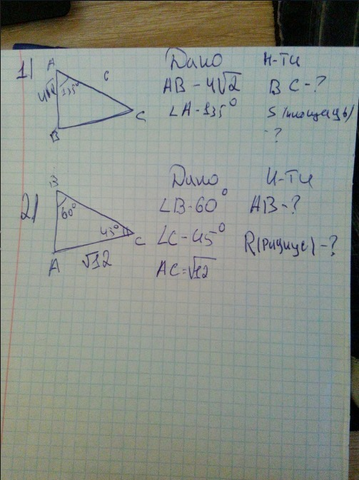 1)
A
4√2
135°
C
B
C
Дано
AB - 4√2
∠A - 135°
Н-ти
BC - ?
S (площадь)
- ?
2)
B
60°
45°
A
√12
C
Дано
∠B - 60°
∠C - 45°
AC = √12
Н-ти
AB - ?
R (радиус) - ?